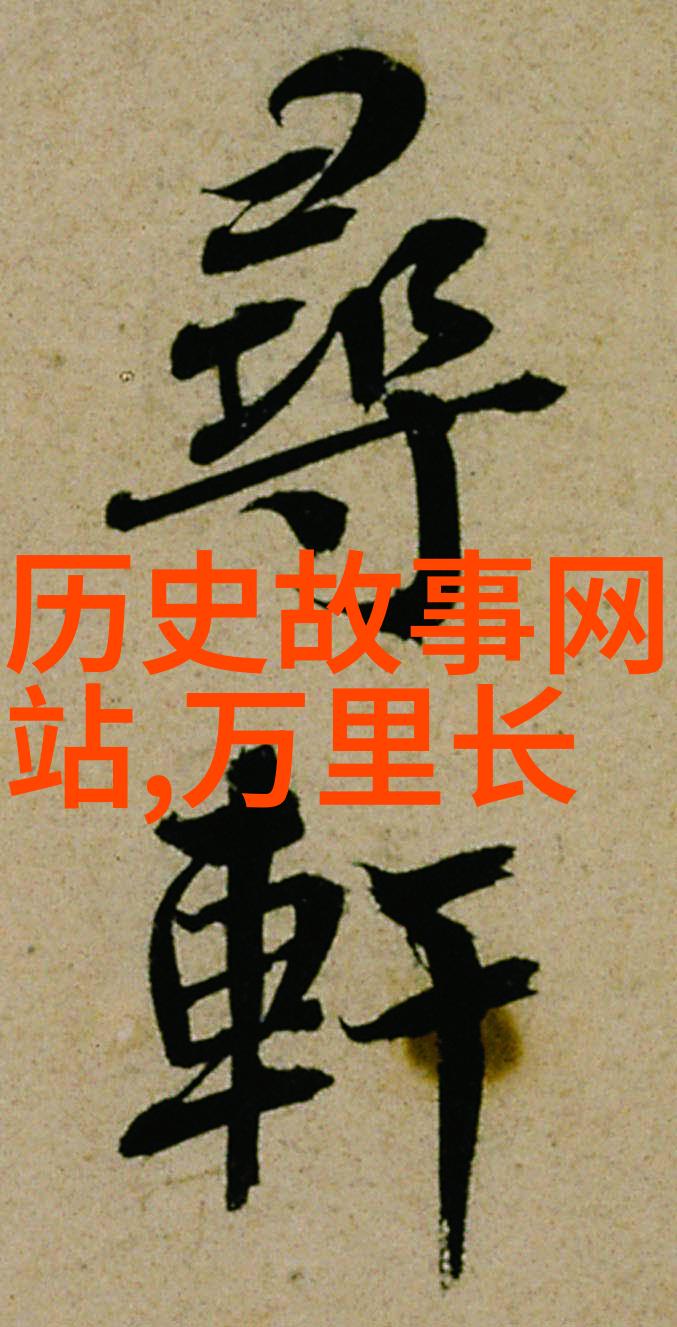 尋
軒
历史故事网
站,万里长